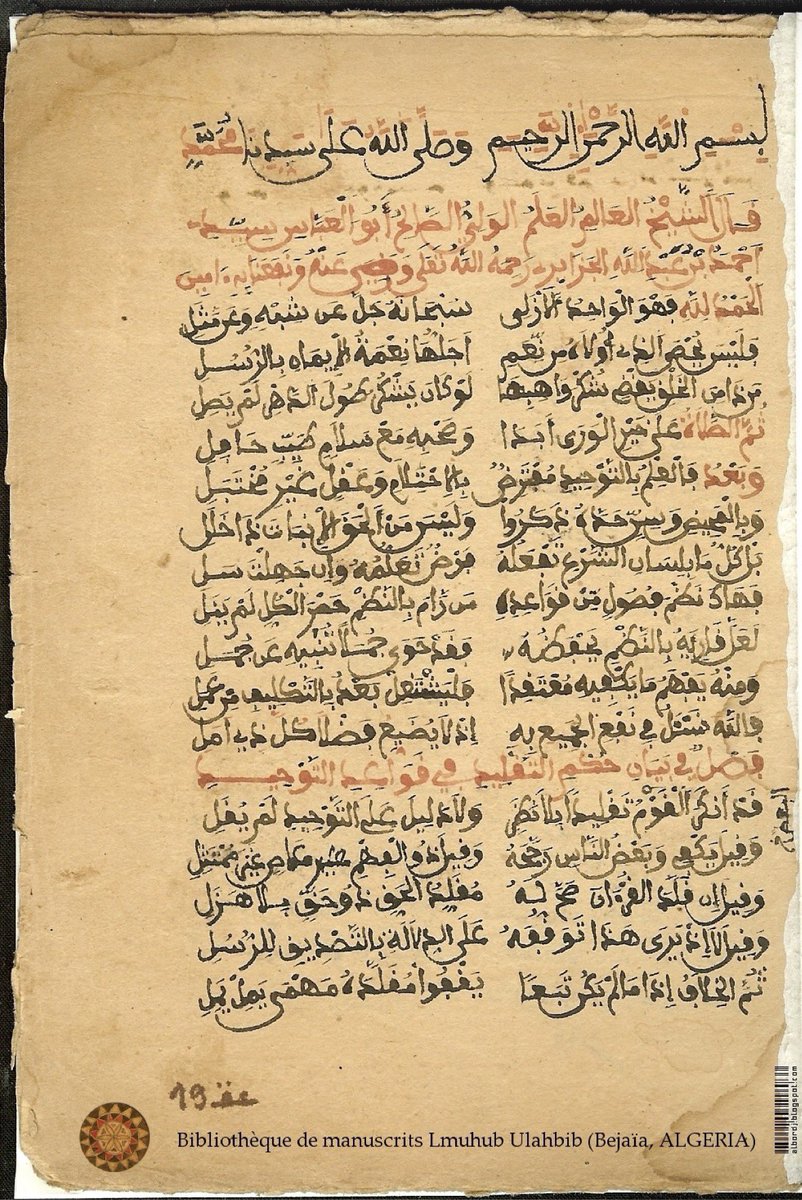 بسم الله الرحمن الرحيم وصلى الله على سيدنا محمد
قال الشيخ العالم العلم الولي الصالح أبو العباس سيد
احمد بن عبد الله الجزاير رحمه الله تعلى ورضي عنه ونفعنا به ءامين
الحمد لله فهو الواحد الازلي سبحانه جل عن شبه وعن مثل
فليس يحصى الذي أولاه من نعم أجلها نعمة الإيمان بالرسل
من ذا من الخلق يحصي شكر واهبها لو كان يشكر طول الدهر لم يصل
ثم الصلاة على خير الورى أبدا وصحبه مع سلام طيب حافل
وبعد فالعلم بالتوحيد مفترض بالاحتلام وعقل غير مختبل
وبالمحيض وسن حده ذكروا وليس من ألحق الإنبات ذا خلل
بل كل ما بلسان الشرع تفعله فرض تعلمه وإن جهلت سل
فهاك نظم فصول من قواعده من رام بالنظم حصر الكل لم ينل
لعل قاريه بالنظم يحفظه فقد حوى جملا تنبيه عن جمل
ومنه يفهم ما يكفيه معتقدا فليشتغل بعد بالتكليف من عمل
فالله نسئل في نفع الجميع به إذ لا يضيع فضلا كل ذي أمل
فصل في بيان حكم التقليد في قواعد التوحيد
قد أنكر القوم تقليدا بلا نظر ولا دليل على التوحيد لم يقل
وقيل يكفي وبعض الناس رجحه وقيل ذو الفهم عاص غير ممتثل
وقيل إن قلد القرءان صح له مقلد الحق ذو حق بلا هزل
وقيل لا إذ يرى هذا توقفه على الدلالة بالتصديق للرسل
ثم الخلاف إذا ما لم يكن تبعا يقفوا مقلده مهمى يمل يمل
19
Bibliothèque de manuscrits Lmuhub Ulahbib (Bejaïa, ALGERIA)
albordj.blogspot.com